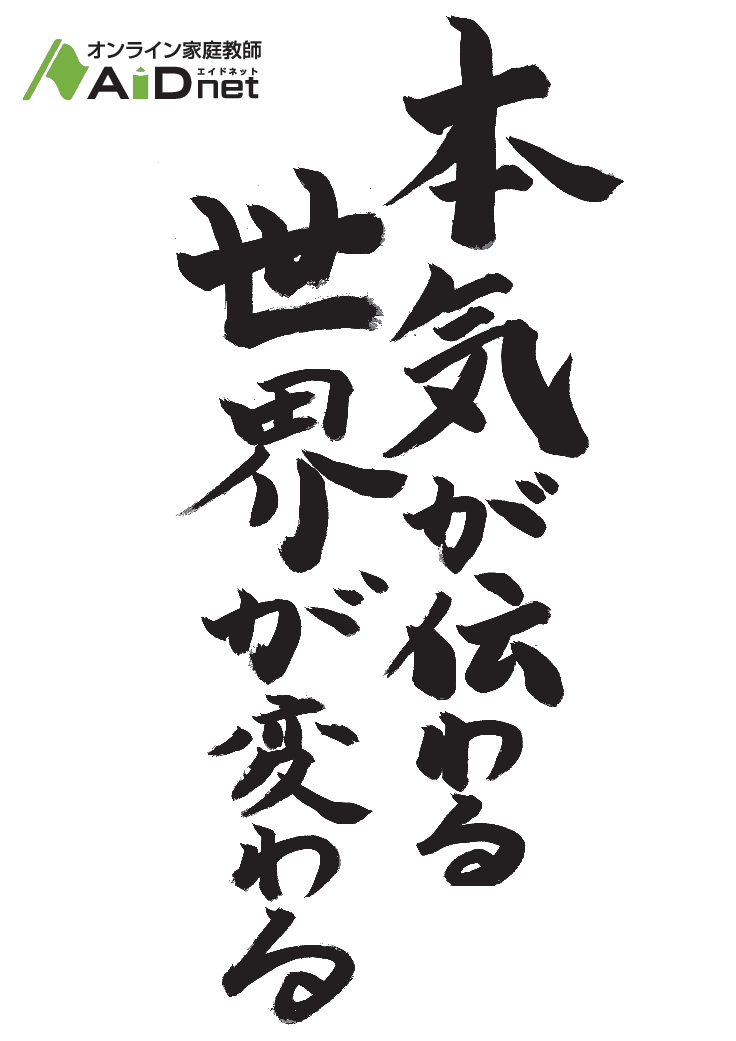 オンライン家庭教師
エイドネット
AiDnet
本気が伝わる
世界が変わる